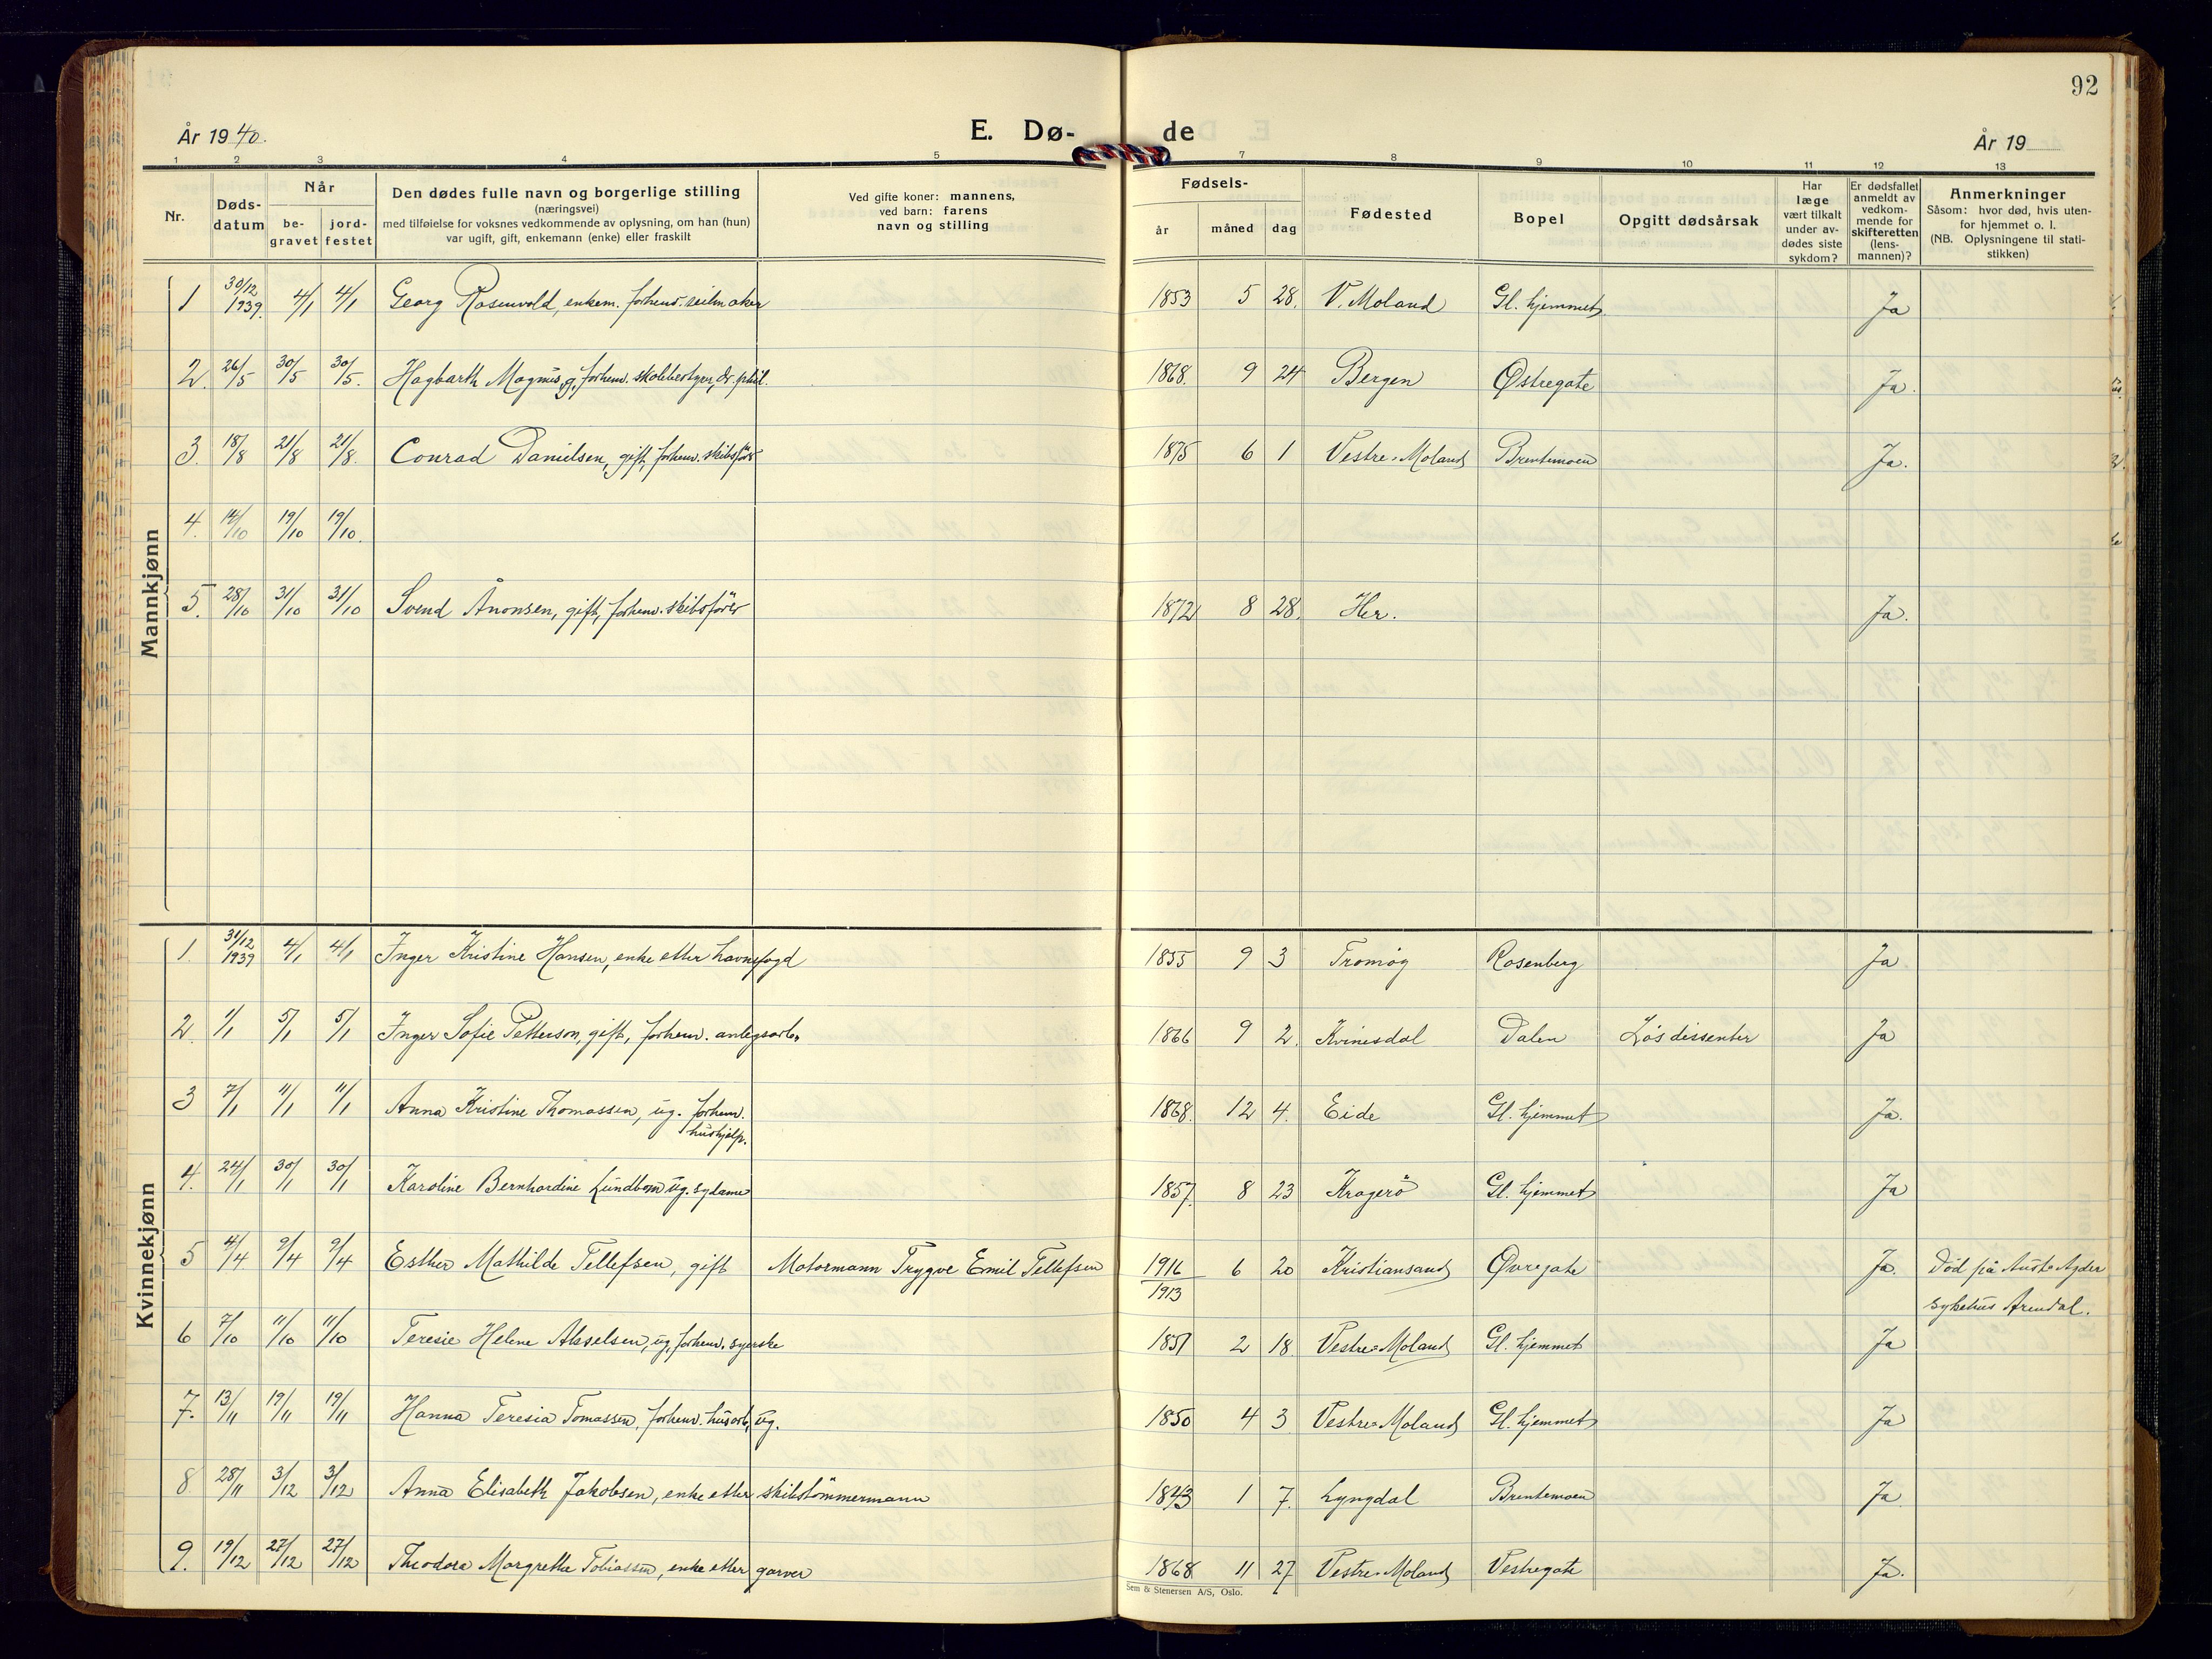 92
År 1940.
E. Dø-
de
År 19
1 2 3 4 5
7 8 9 10 11 12 13
Nr.
Døds-
datum
Når
be-
gravet
jord-
festet
Den dødes fulle navn og borgerlige stilling
(næringsvei)
med tilføielse for voksnes vedkommende av oplysning, om han (hun)
var ugift, gift, enkemann (enke) eller fraskilt
Ved gifte koner: mannens,
ved barn: farens
navn og stilling
Fødsels-
år
måned
dag
Fødested
Bopel
Opgitt dødsårsak
Har
læge
vært tilkalt
under av-
dødes siste
sykdom?
Er dødsfallet
anmeldt av
vedkom-
mende for
skifteretten
(lens-
mannen)?
Anmerkninger
Såsom: hvor død, hvis uten-
for hjemmet o. l.
(NB. Oplysningene til stati-
stikken)
Mannkjønn
1 30/12 1939. 4/1 4/1 Georg Rosenvold, enkem. forhenv. seilmaker 1853 5 28. V. Moland Gl. hjemmet Ja
2. 26/5 30/5 30/5. Hagbarth Magnus, g, forhenv. skolebestyrer, dr. phil. 1868. 9 24 Bergen Østregate Ja.
3. 18/8 21/8 21/8. Conrad Danielsen, gift, forhenv. skibsfører 1875 6 1 Vestre-Moland Brentemoen Ja.
4. 14/10 19/10 19/10.
5. 28/10 31/10 31/10 Svend Ånonsen, gift, forhenv. skibsfører 1872 8 28. Her. Ja.
Kvinnekjønn
1. 31/12 1939 4/1 4/1 Inger Kristine Hansen, enke etter havnefogd 1855 9 3 Tromøy Rosenberg Ja
2. 1/1 5/1 5/1 Inger Sofie Petterson, gift, forhenv. anlegsarb. 1866 9 2. Kvinesdal Dalen Løs dissenter Ja
3 7/1 11/1 11/1 Anna Kristine Thomassen, ug. forhenv.
hushjelp. 1868. 12 4. Eide Gl. hjemmet Ja.
4. 24/1 30/1 30/1 Karoline Bernhardine Lundbom ug. sydame 1857. 8 23 Kragerø Gl. hjemmet Ja
5 4/4 9/4 9/4 Esther Mathilde Tellefsen, gift Motormann Trygve Emil Tellefsen 1916 6 20 Kristiansand Øvregate Ja. Død på Aust-Agder
1913 sykehus Arendal.
6 7/10 11/10 11/10 Teresie Helene Akselsen, ug, forhenv. syerske 1851 2 18. Vestre-Moland Gl. hjemmet Ja
7. 13/11 19/11 19/11 Hanna Teresia Tomassen, forhenv. husarb, ug. 1850 4 3 Vestre-Moland Gl. hjemmet Ja
8. 28/11 3/12 3/12 Anna Elisabeth Jakobsen, enke etter skibstømmermann 1843 1 7. Lyngdal Brentemoen Ja
9. 19/12 27/12 27/12 Theodora Margrethe Tobiassen, enke etter garver 1868 11 27 Vestre-Moland Vestregate Ja.
Sem & Stenersen A/S, Oslo.